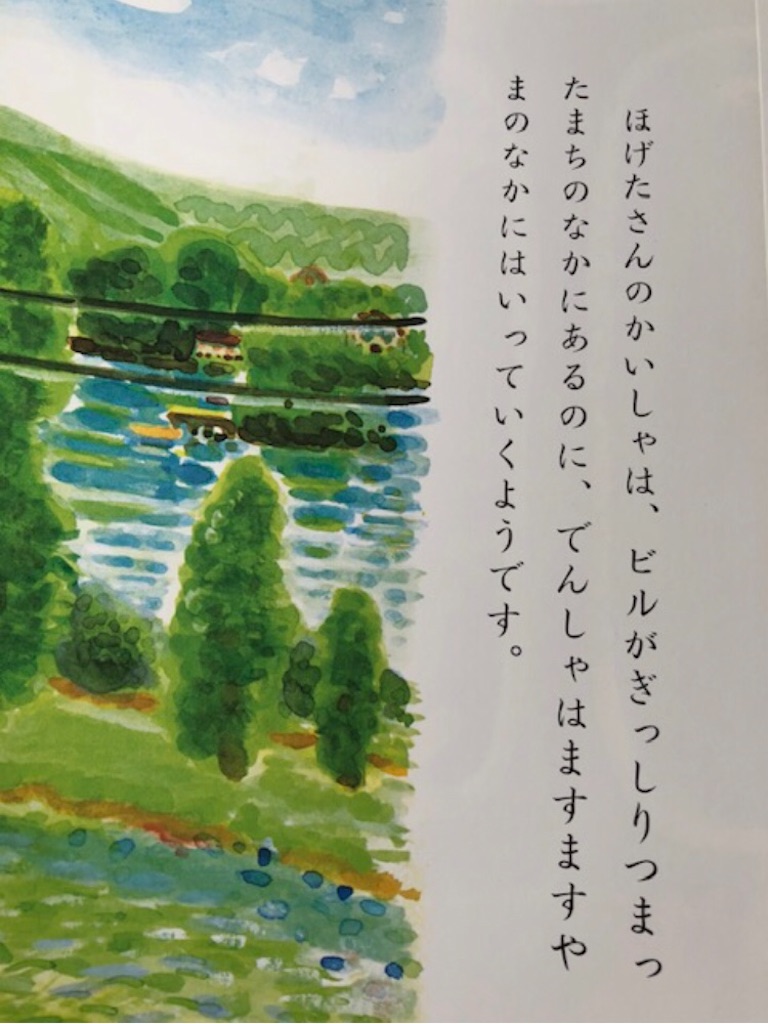 ほげたさんのかいしゃは、ビルがぎっしりつまっ
たまちのなかにあるのに、でんしゃはますますや
まのなかにはいっていくようです。